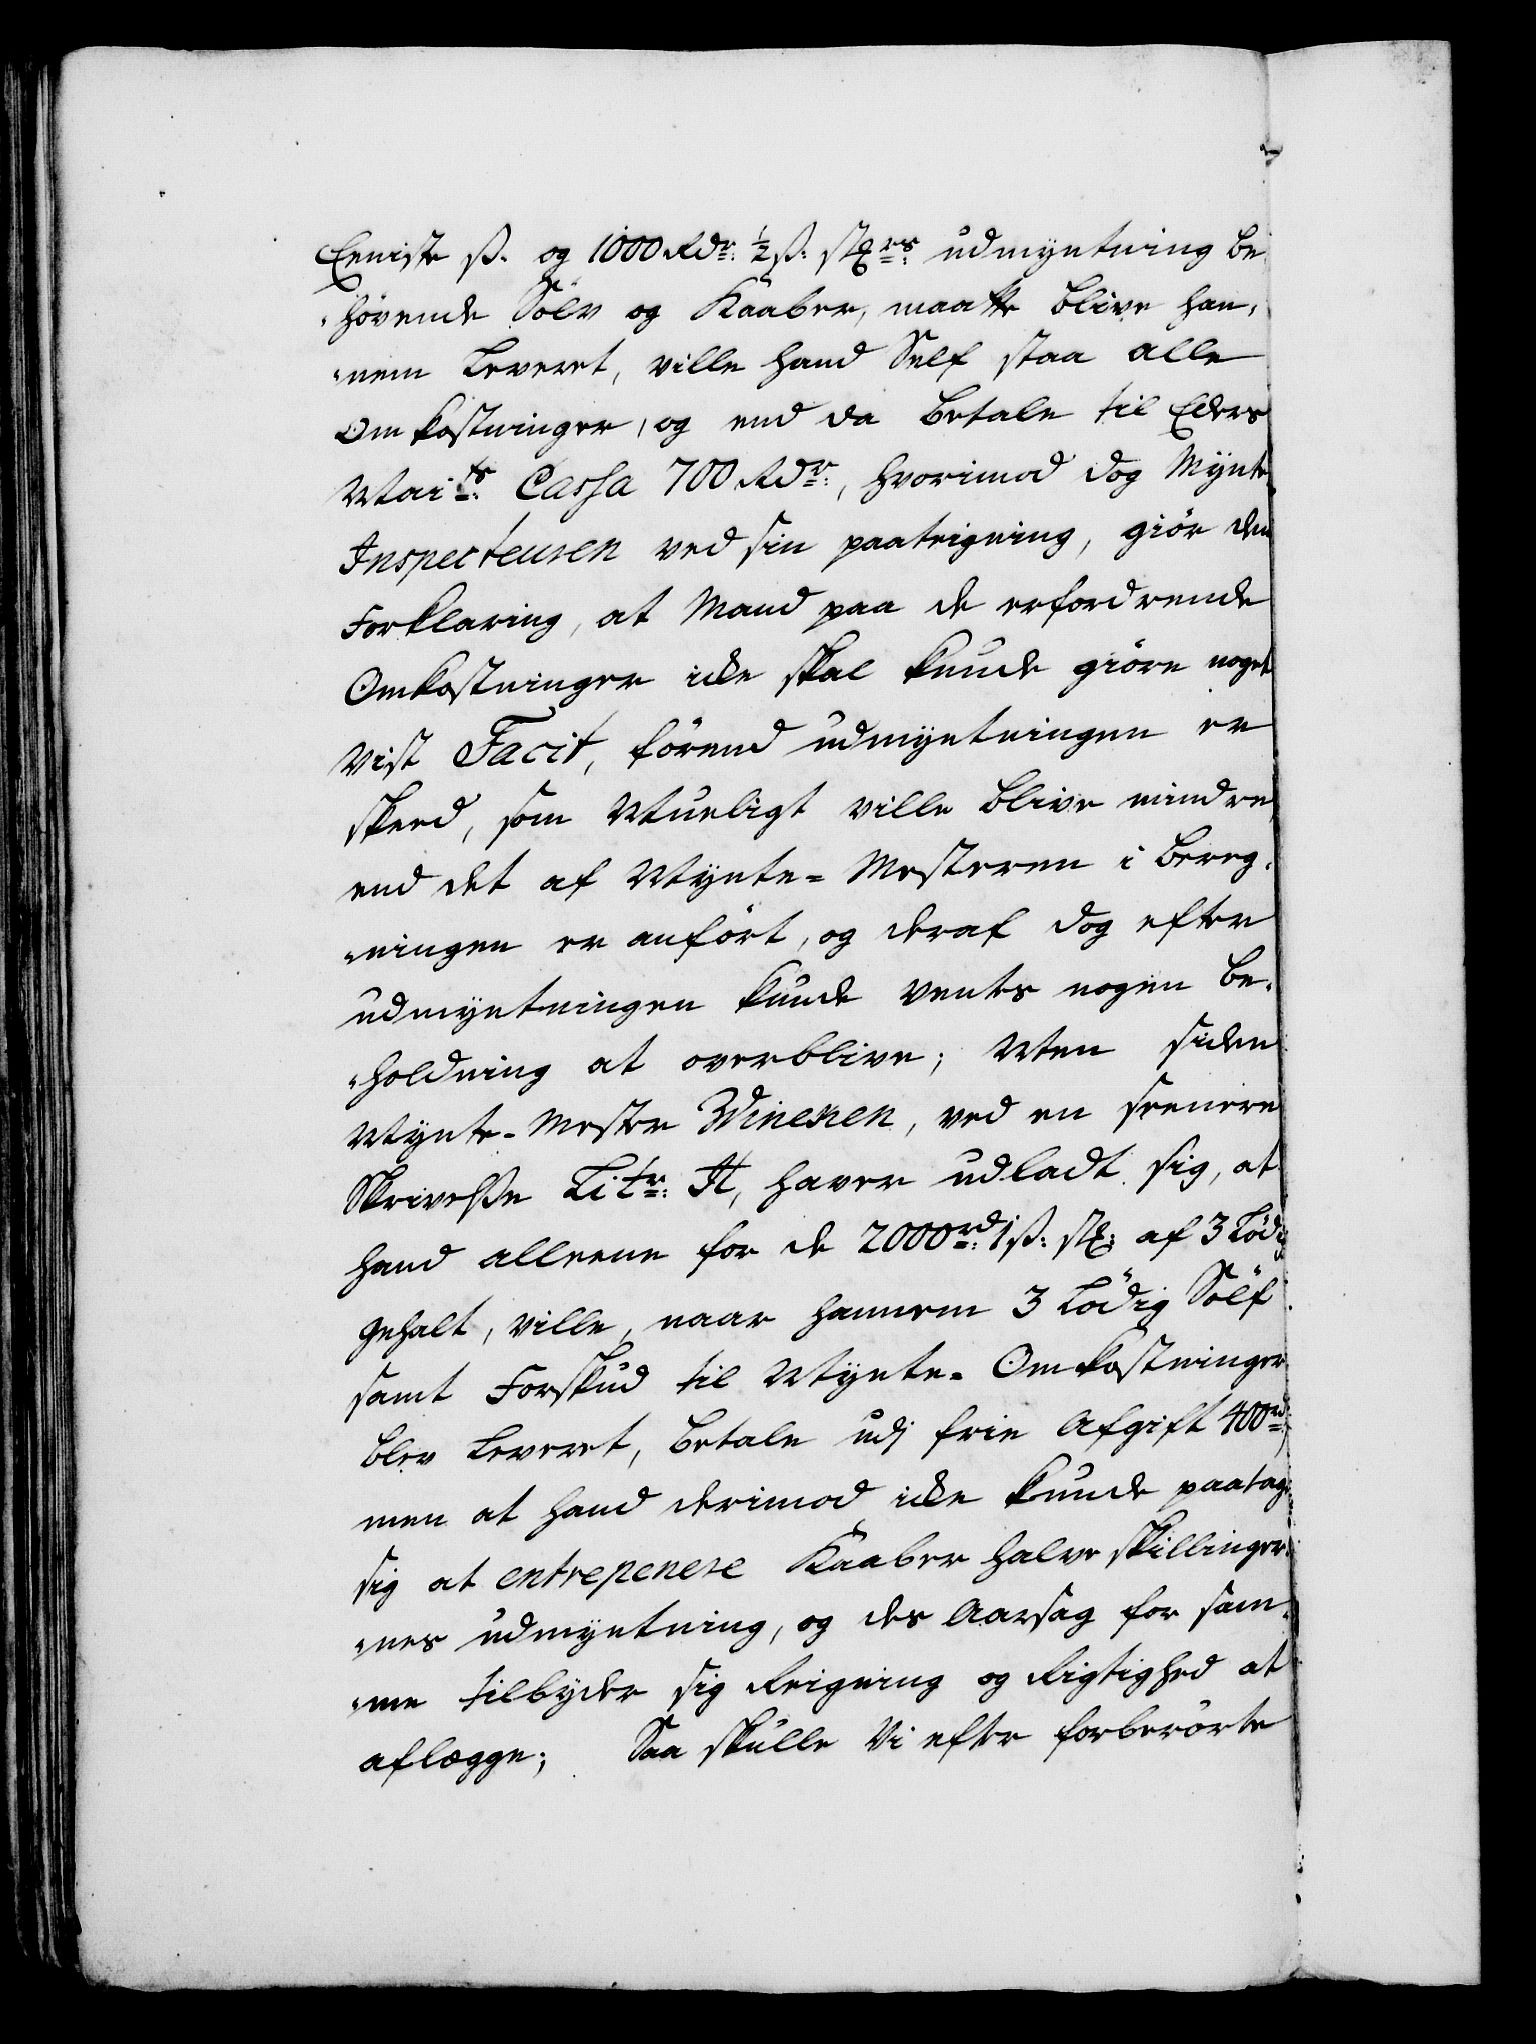 Eeniste ß. og 1000 Rdr: ½ ß: stX:rs udmyntning be
"hövende Sölv og Kaaber, maatte blive han,
"nem Leveret, ville hand Self staa alle
Omkostninger, og end da betale til Eders
Mai:ts Cassa 700 Rdr:, hvorimod dog Mynt
Inspecteuren ved sin paateigning, giör den
Forklaring, at Mand paa de erfordrende
Omkostninger icke skal kunde giöre noget
vist Facit, förend udmyntningen er
skeed, som Mueligt ville blive mindre
end det af Mynte-Mesteren i bereg,
"ningen er anfört, og deraf dog efter
udmyntningen kunde ventes nogen be,
"holdning at overblive; Men siden
Mynte-Mester Wineken, ved en seenere
Skrivelse Litr: A, haver udladt sig, at
hand alleene for de 2000rd: 1 ß: stX: af 3 Lödig
gehalt, ville, naar hannem 3 Lödig Sölf
samt Forskud til Mynte-Omkostninger
blev Leveret, betale udj frie Afgift 400rd:
men at hand derimod icke kunde paatage
sig at entrepenere Kaaber halve skillinger,
"nes udmyntning, og des Aarsag for sam,
"me tilbyder sig Reigning og Rigtighed at
aflægge; Saa skulle Vi efter forberörte